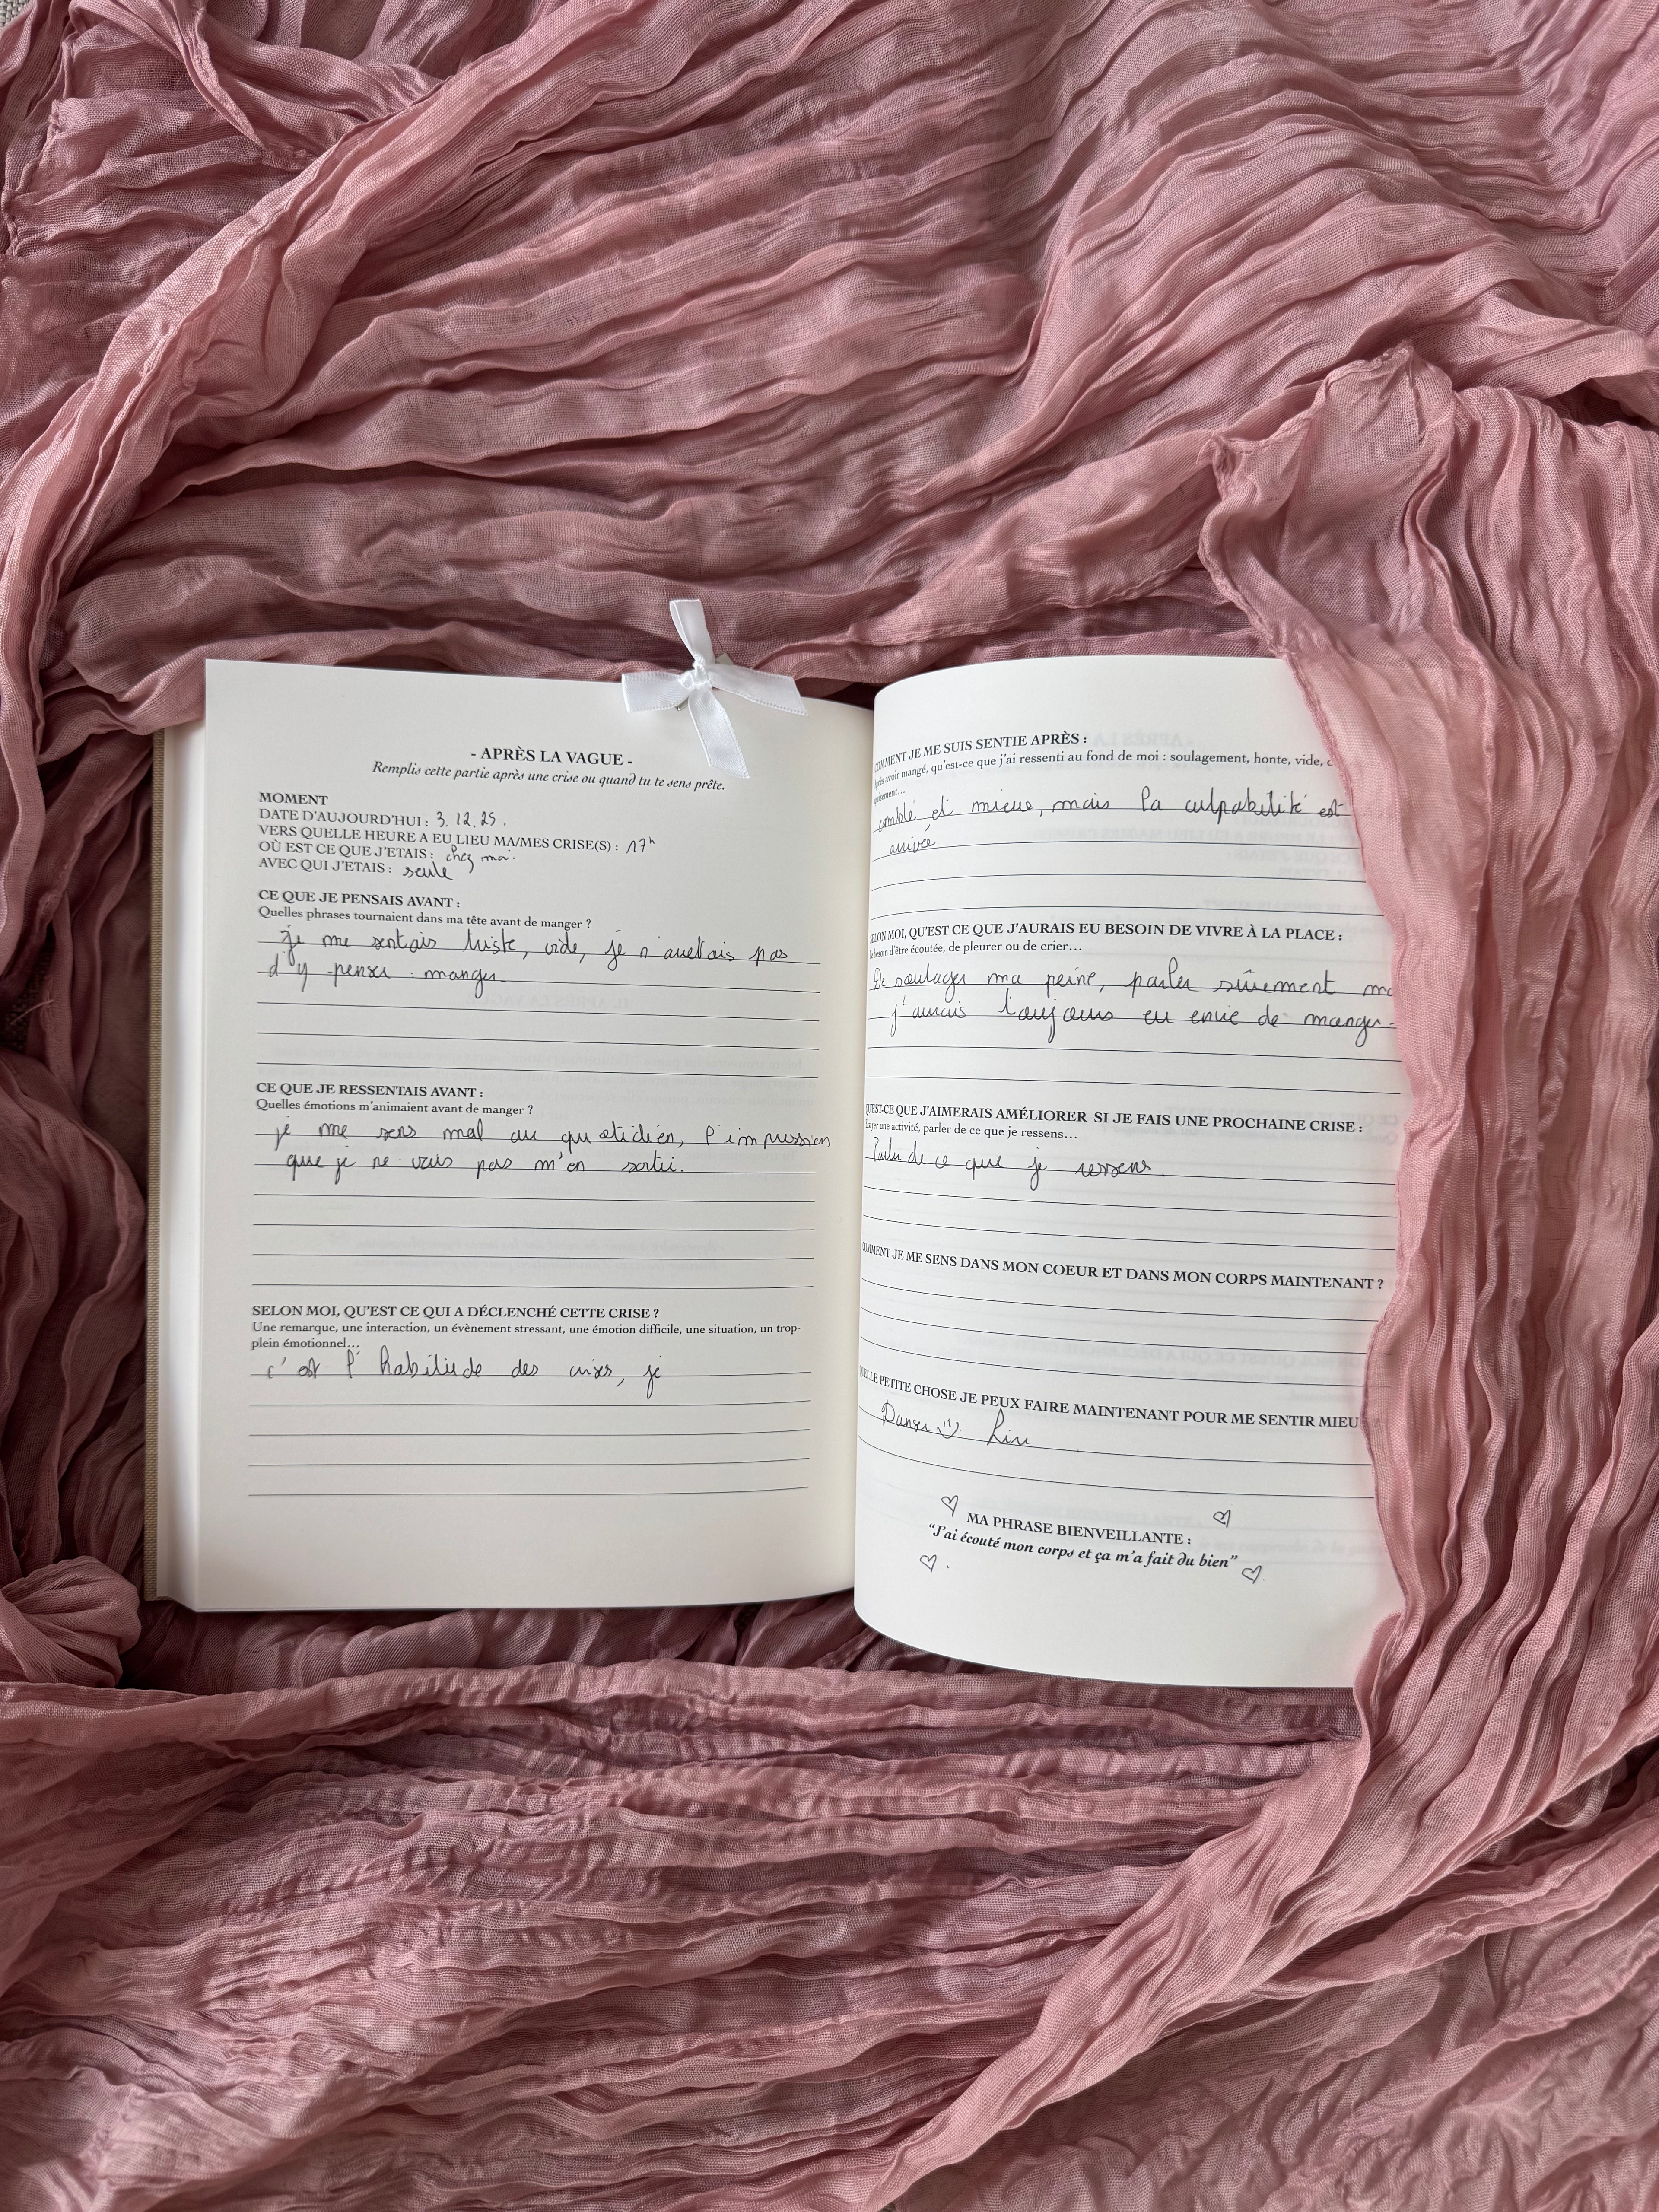 - APRÈS LA VAGUE -
Remplis cette partie après une crise ou quand tu te sens prête.
MOMENT
DATE D'AUJOURD'HUI : 3.12.25.
VERS QUELLE HEURE A EU LIEU MA/MES CRISE(S) : 17h
OÙ EST CE QUE J'ETAIS : chez moi.
AVEC QUI J'ETAIS : seule
CE QUE JE PENSAIS AVANT :
Quelles phrases tournaient dans ma tête avant de manger ?
je me sentais triste, vide, je n'arrêtais pas
d'y penser. manger.
CE QUE JE RESSENTAIS AVANT :
Quelles émotions m'animaient avant de manger ?
je me sens mal au quotidien, l'impression
que je ne vais pas m'en sortir.
SELON MOI, QU'EST CE QUI A DÉCLENCHÉ CETTE CRISE ?
Une remarque, une interaction, un évènement stressant, une émotion difficile, une situation, un trop-
plein émotionnel...
c'est l'habitude des crises, je
COMMENT JE ME SUIS SENTIE APRÈS :
Après avoir mangé, qu'est-ce que j'ai ressenti au fond de moi : soulagement, honte, vide,
comblé et mieux, mais la culpabilité est
arrivé
SELON MOI, QU'EST CE QUE J'AURAIS EU BESOIN DE VIVRE À LA PLACE :
besoin d'être écoutée, de pleurer ou de crier...
De soulager ma peine, parler sûrement
j'aurais toujours eu envie de manger.
QU'EST-CE QUE J'AIMERAIS AMÉLIORER SI JE FAIS UNE PROCHAINE CRISE :
Essayer une activité, parler de ce que je ressens...
Parler de ce que je ressens.
COMMENT JE ME SENS DANS MON COEUR ET DANS MON CORPS MAINTENANT ?
QUELLE PETITE CHOSE JE PEUX FAIRE MAINTENANT POUR ME SENTIR MIEU
Danser Lire
MA PHRASE BIENVEILLANTE :
"J'ai écouté mon corps et ça m'a fait du bien"